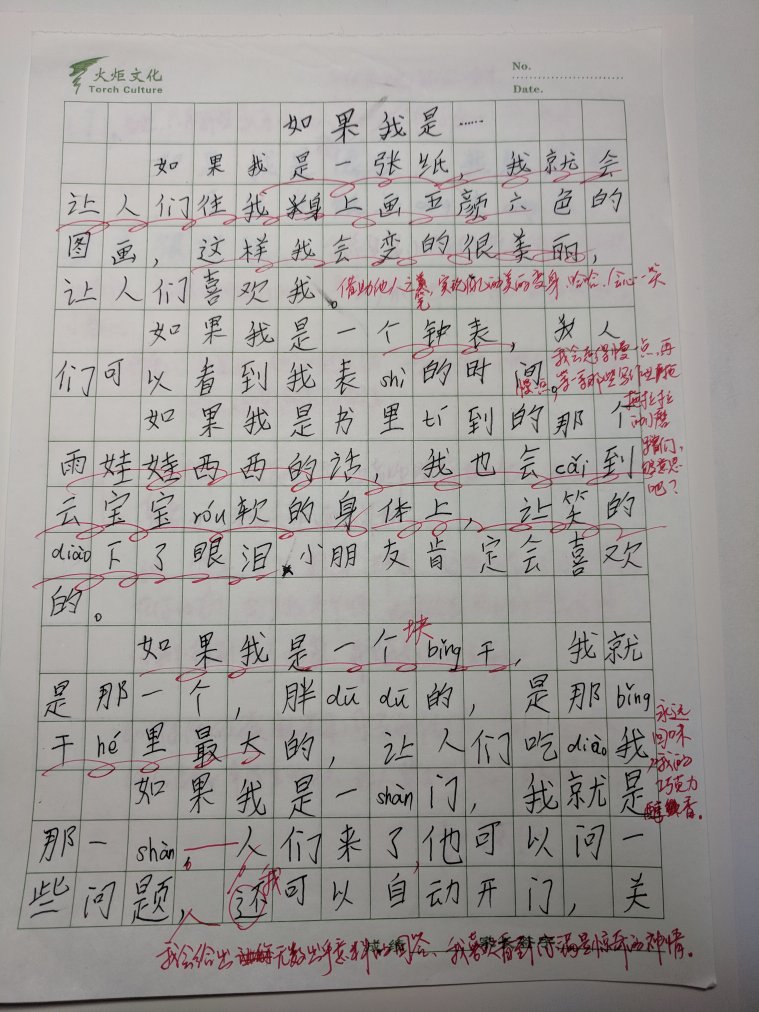 火炬文化
Torch Culture
No.
Date.
如果我是……
如果我是一张纸，我就会
让人们往我身上画五颜六色的
图画，这样我会变的很美丽，
让人们喜欢我。
借助他人之 实现自己的美丽变身，哈哈，会心一笑
如果我是一个钟表，
人
们可以看到我表shì的时间。
我会走得慢点，再
慢点，等一等那些写作业拖
拖拉拉
的小磨
蹭们，
够意思
吧？
如果我是书里tí到的那个
雨娃娃西西的话，我也会cǎi到
云宝宝róu软的身体上，让笑的
diào下了眼泪。小朋友肯定会喜欢
的。
如果我是一个bǐng干，我就
块
是那一个，胖dū dū的，是那bǐng
干hé里最大的，让人们吃diào我
永远
回味
我的
巧克力
醇香。
如果我是一shàn门，我就是
那一shàn，人们来了，他可以问一
些问题，还可以自动开门，关
我
我会给出无数出乎意料的回答，我喜欢看到 满是惊奇的神情。